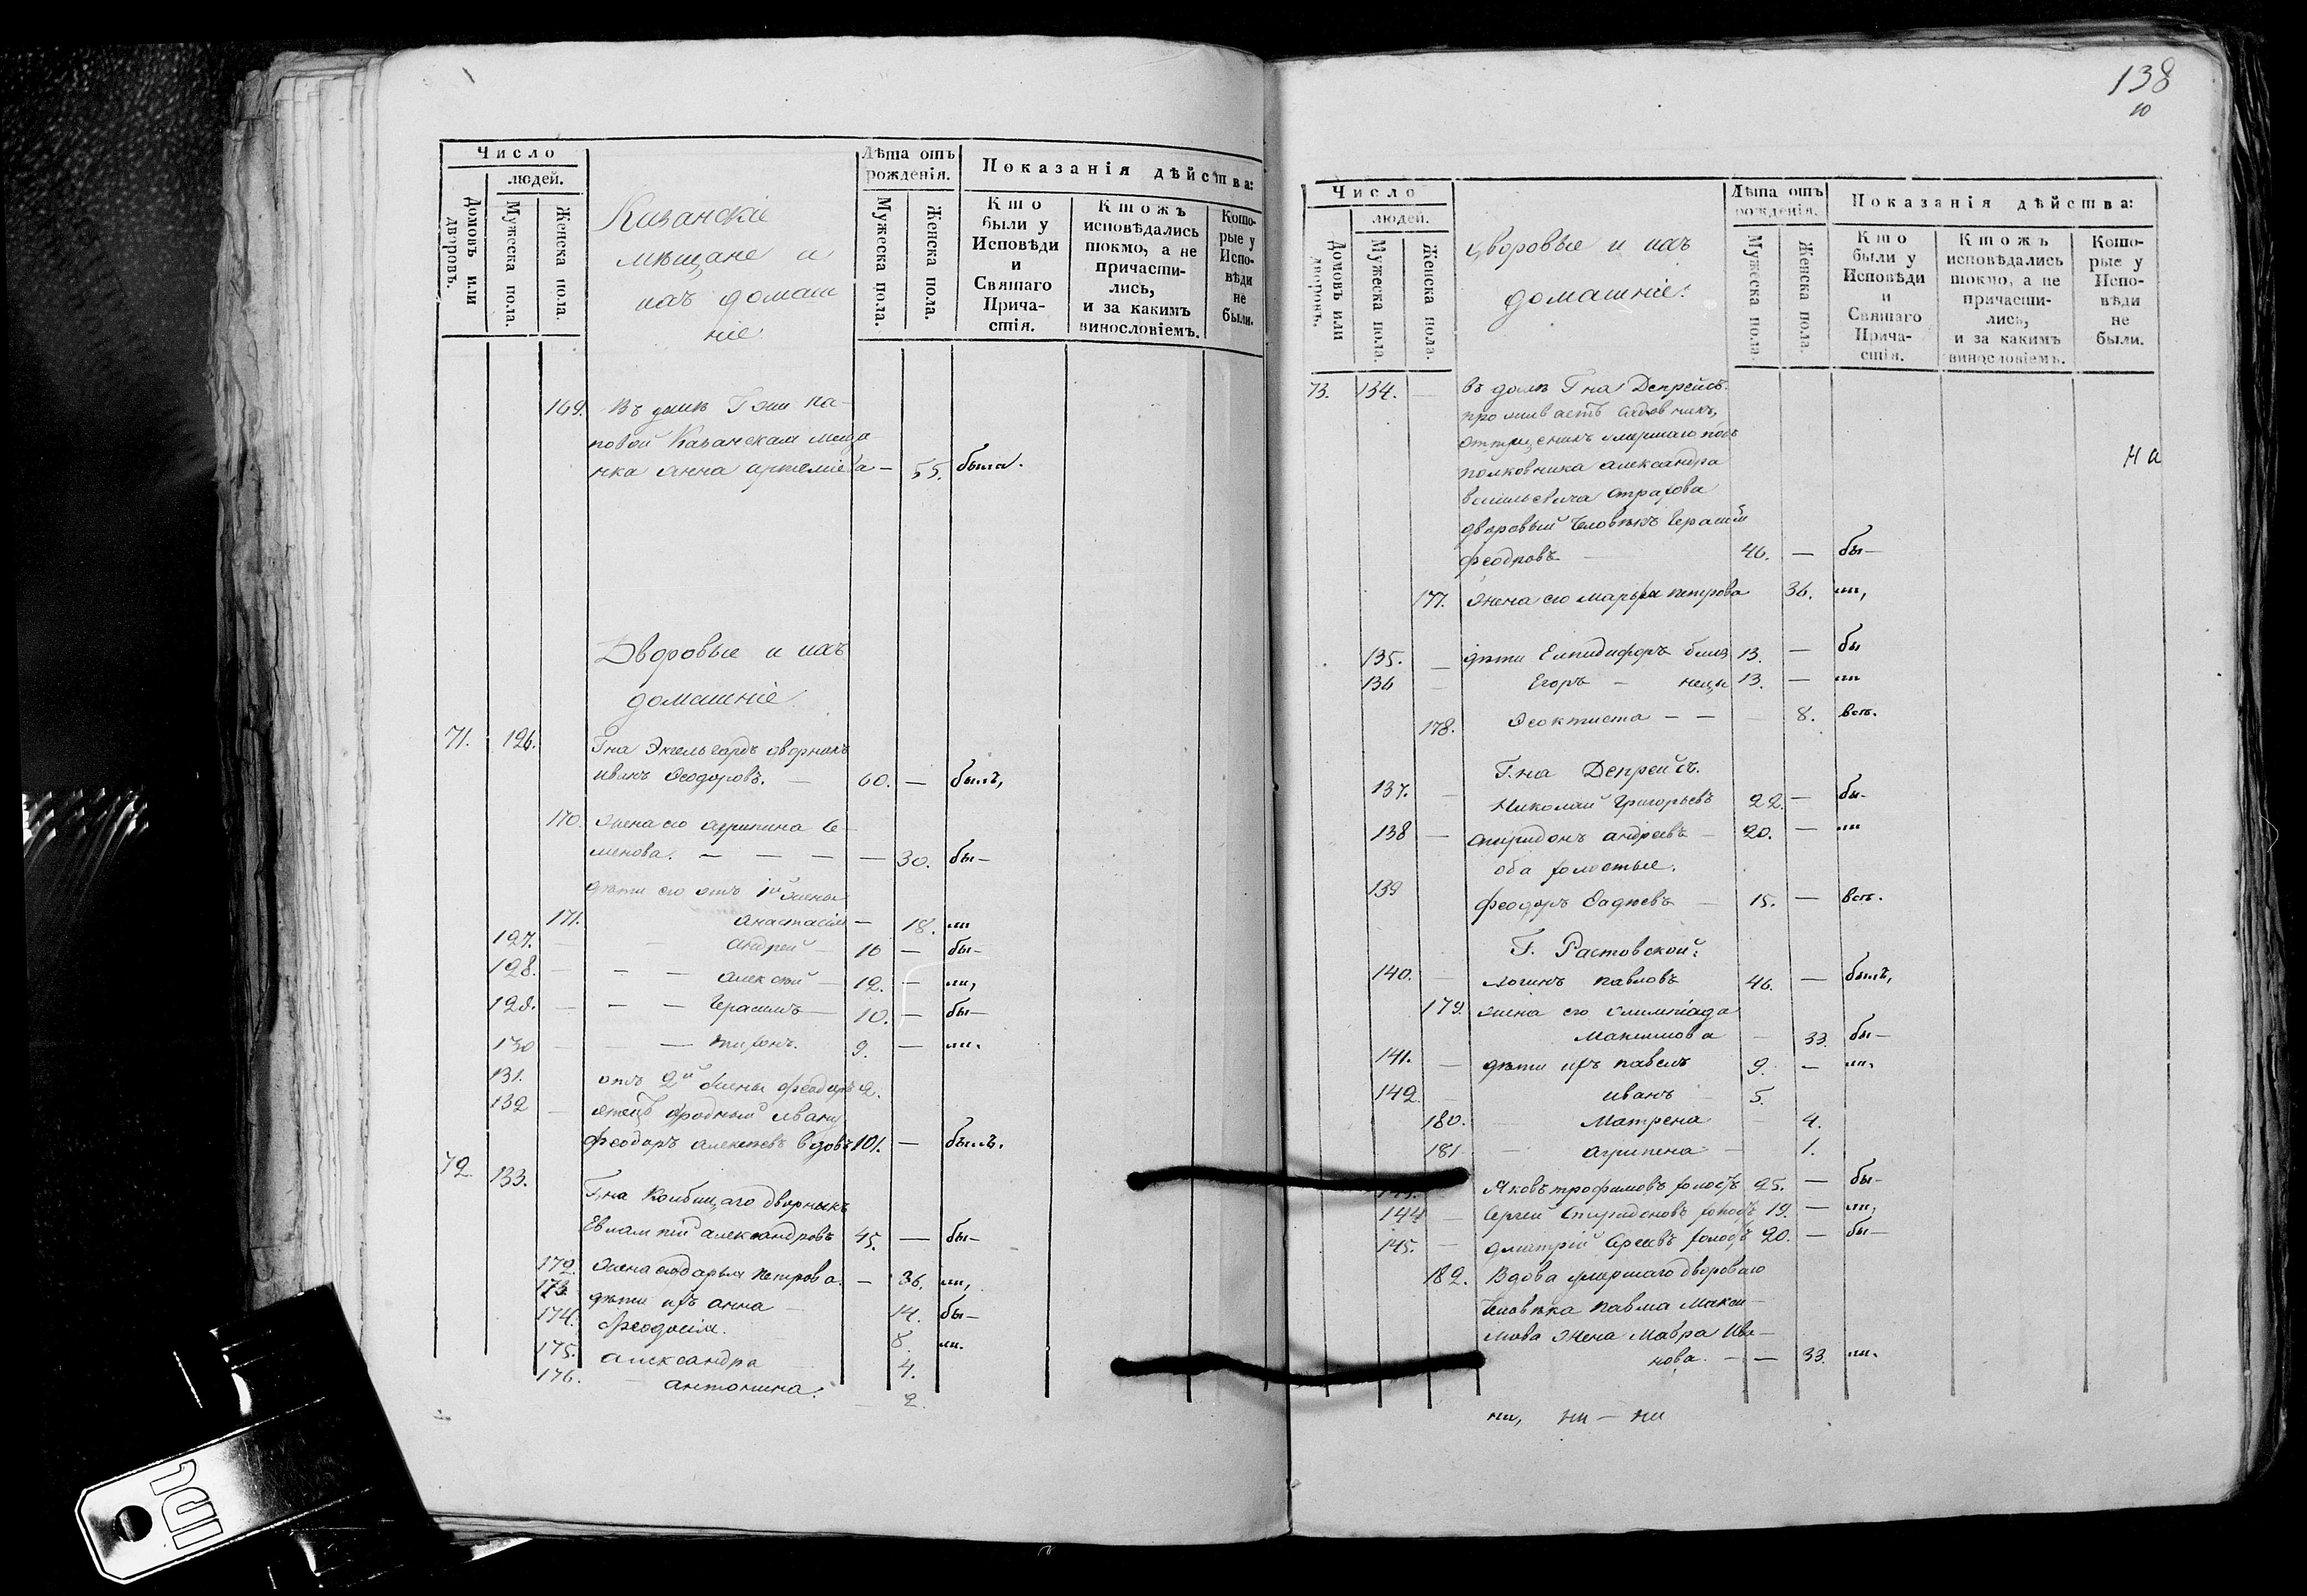 Число
людей.
Домовъ или дворовъ.
Мужеска пола.
Женска пола.
Казанскіе
мѣщане и
ихъ домаш
ніе
Лѣта отъ рожденія.
Мужеска пола.
Женска пола.
Показанія дѣйства:
Кто были у Исповѣди и Святаго Прича-
стія.
Ктожъ исповѣдались
токмо, а не причасти-
лись,
и за какимъ винословіемъ.
Кото-
рые у Испо-
вѣди не были.
169. Въ домѣ Гжи
повой Казанская меща
нка Анна Артеміева — 55. была.
Дворовые и ихъ
домашніе.
71. 126. Гна Энгельгардъ дворникъ
Иванъ Ѳеодоровъ. — 60. — былъ,
170. Жена его Агрипина Се-
менова. — — — — 30. бы—
дѣти его отъ 1й жены
171. Анастасія — 18. ли
127. — — Андрей — 16 — бы—
128. — — — Алексѣй — 12. — ли,
129. — — — Герасимъ — 10. — бы—
130 — — — Тихонъ. 9. — ли.
131. отъ 2й жены Феодоръ 2.
132 — отецъ сродный Ивану
Феодоръ Алексѣевъ вдовъ 101. — былъ.
72. 133. Гна дворникъ
Евлампій Александровъ 45. — бы—
172. Жена его Дарья Петрова. — 36. ли,
173. дѣти ихъ Анна — 14. бы—
174. Феодосія. 8. ли.
175. Александра 4.
176. — Антонина. 2.
138
10
Число
людей.
Домовъ или дворовъ.
Мужеска пола.
Женска пола.
Дворовые и ихъ
домашніе:
Лѣта отъ рожденія.
Мужеска пола.
Женска пола.
Показанія дѣйства:
Кто были у Исповѣди и Святаго Прича-
стія.
Ктожъ исповѣдались
токмо, а не причасти-
лись,
и за какимъ винословіемъ.
Кото-
рые у Испо-
вѣди не были.
73. 134. — въ домѣ Гна Депрейсъ
проживаетъ садовникъ,
отпущеникъ умершаго под
полковника Александра
Васильевича Страхова
дворовый человѣкъ Герасим
46. — бы—
На
177. Жена его Марья Петрова 36. ли,
135. — дѣти Елпидифоръ близ 13. — бы
136 — Егоръ — нецы 13. — ли
178. Ѳеоктиста — — 8. все.
Г.на Депрейсъ.
137. — Николай Григорьевъ 22. — бы-
138 — Спиридонъ Андреевъ — 20. — ли
оба холостые.
139 Феодоръ — 15. — все.
Г. Растовской:
140. — Логинъ Павловъ 46. — былъ,
179. жена его Олимпіада
Максимова — 33. бы—
141. — дѣти ихъ Павелъ 9. — ли,
142. — Иванъ — 5.
180. — Матрена — 4.
181 — Агрипена — 1.
143. Яковъ Трофимовъ холостъ 25. — бы-
144 — Сергей Спиридоновъ холостъ 19. — ли,
145. — Дмитрій холостъ 20. — бы—
182. Вдова умершаго двороваго
человѣка Павла Макси—
мова жена Мавра Ива—
нова. — — 33. ли.
ни, ни — ни